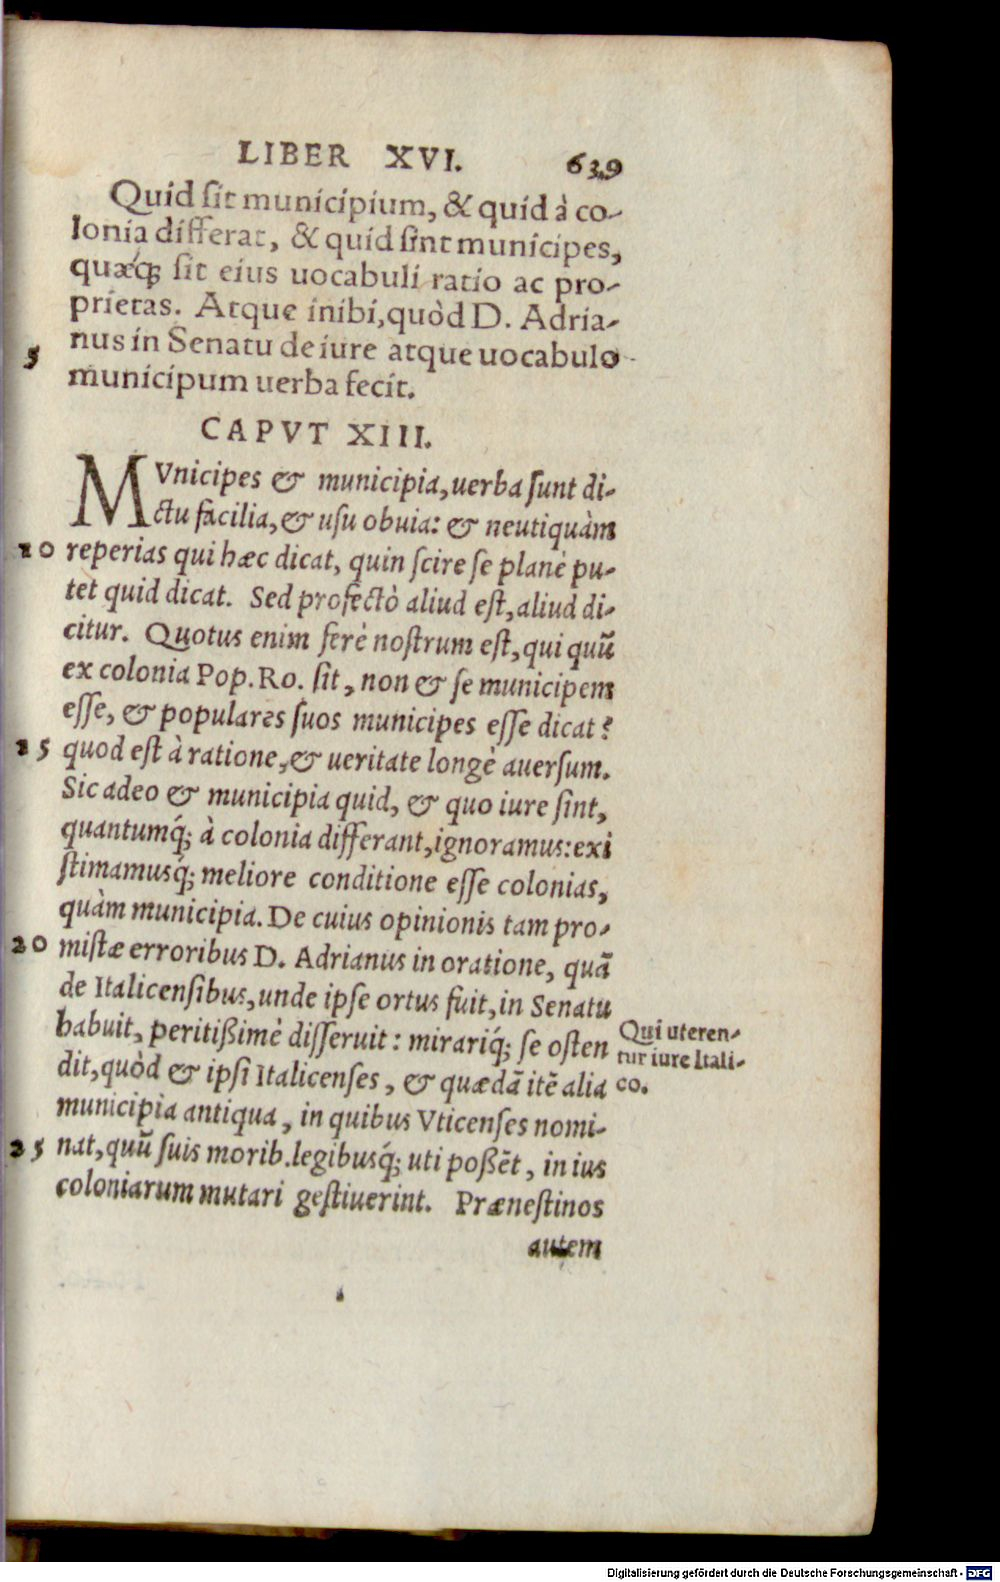 LIBER XVI. 639
Quid sit municipium, & quid à co-
lonia differat, & quid sint municipes,
quæq́; sit eius uocabuli ratio ac pro-
prietas. Atque inibi, quòd D. Adria-
5 nus in Senatu de iure atque uocabulo
municipum uerba fecit.
CAPVT XIII.
MVnicipes & municipia, uerba sunt di-
ctu facilia, & usu obuia: & neutiquàm
10 reperias qui hæc dicat, quin scire se planè pu-
tet quid dicat. Sed profectò aliud est, aliud di-
citur. Quotus enim ferè nostrum est, qui quũ
ex colonia Pop. Ro. sit, non & se municipem
esse, & populares suos municipes esse dicat?
15 quod est à ratione, & ueritate longè auersum.
Sic adeo & municipia quid, & quo iure sint,
quantumq́; à colonia differant, ignoramus: exi
stimamusq́; meliore conditione esse colonias,
quàm municipia. De cuius opinionis tam pro-
20 mistæ erroribus D. Adrianus in oratione, quã
de Italicensibus, unde ipse ortus fuit, in Senatu
habuit, peritißimè disseruit: mirariq́; se osten
dit, quòd & ipsi Italicenses, & quædã itẽ alia
municipia antiqua, in quibus Vticenses nomi-
25 nat, quũ suis morib. legibusq́; uti poßẽt, in ius
coloniarum mutari gestiuerint. Prænestinos
autem
Qui uteren-
tur iure Itali-
co.
Digitalisierung gefördert durch die Deutsche Forschungsgemeinschaft - DFG